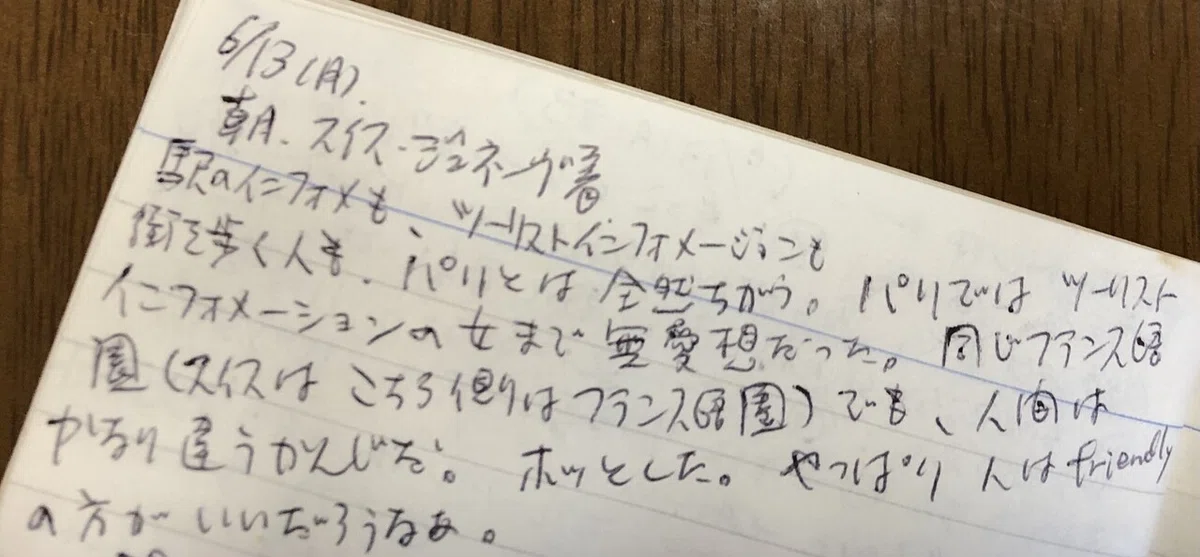 6/13(月).
朝.スイス・ジュネーヴ着
駅のインフォメも、ツーリストインフォメーションも
街を歩く人も.パリとは全然ちがう。パリではツーリスト
インフォメーションの女まで無愛想だった。同じフランス語
圏(スイスはこちら側はフランス語圏)でも、人間は
かなり違うかんじだ。ホッとした。やっぱり人はfriendly
の方がいいだろうなあ。